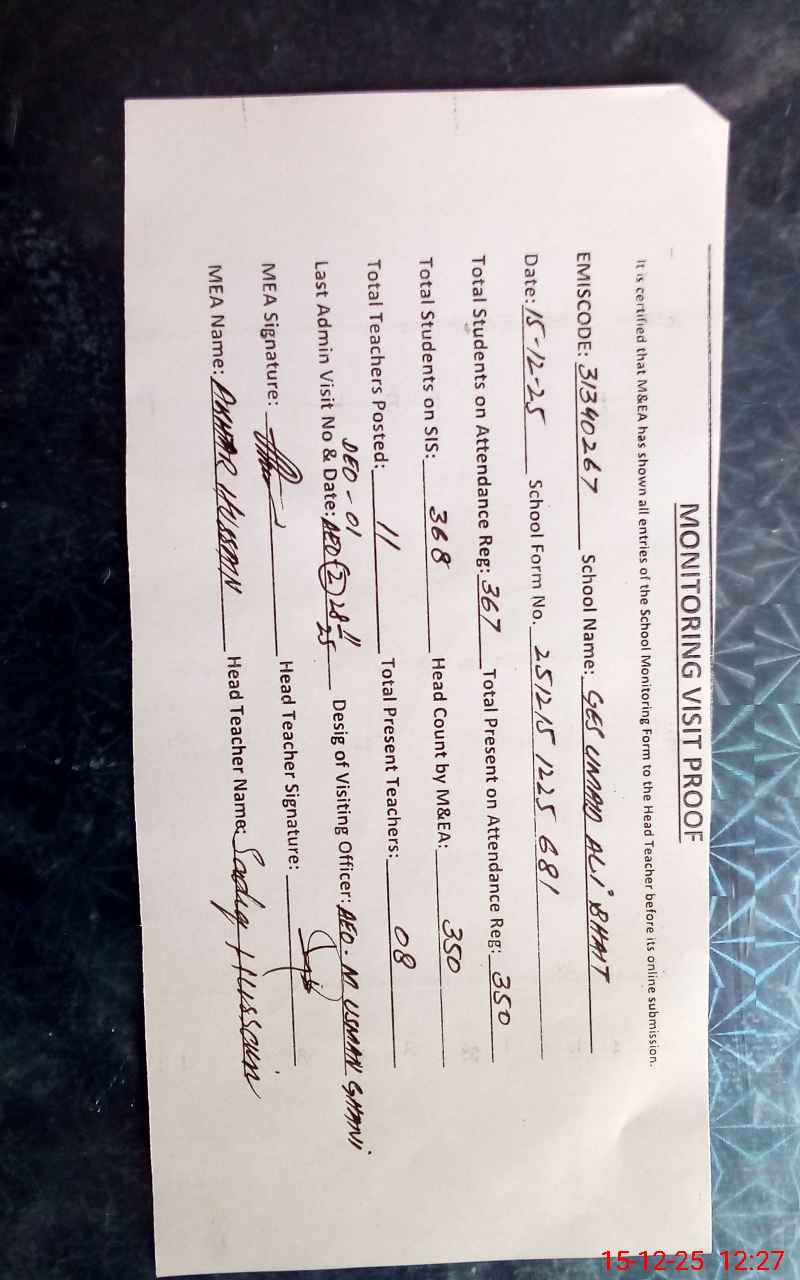 MONITORING VISIT PROOF
It is certified that M&EA has shown all entries of the School Monitoring Form to the Head Teacher before its online submission.
EMISCODE: 31340267 School Name: GES UMAD ALI BHAT
Date: 15-12-25 School Form No. 251215 1225 681
Total Students on Attendance Reg: 367 Total Present on Attendance Reg: 350
Total Students on SIS: 368 Head Count by M&EA: 350
Total Teachers Posted: 11 Total Present Teachers: 08
DEO-01
Last Admin Visit No & Date: AEO (2) 28-11 25 Desig of Visiting Officer: AEO. M USMAN GHANI
MEA Signature: Head Teacher Signature:
MEA Name: HUSSAIN Head Teacher Name: Sadiq Hussain
15-12-25 12:27